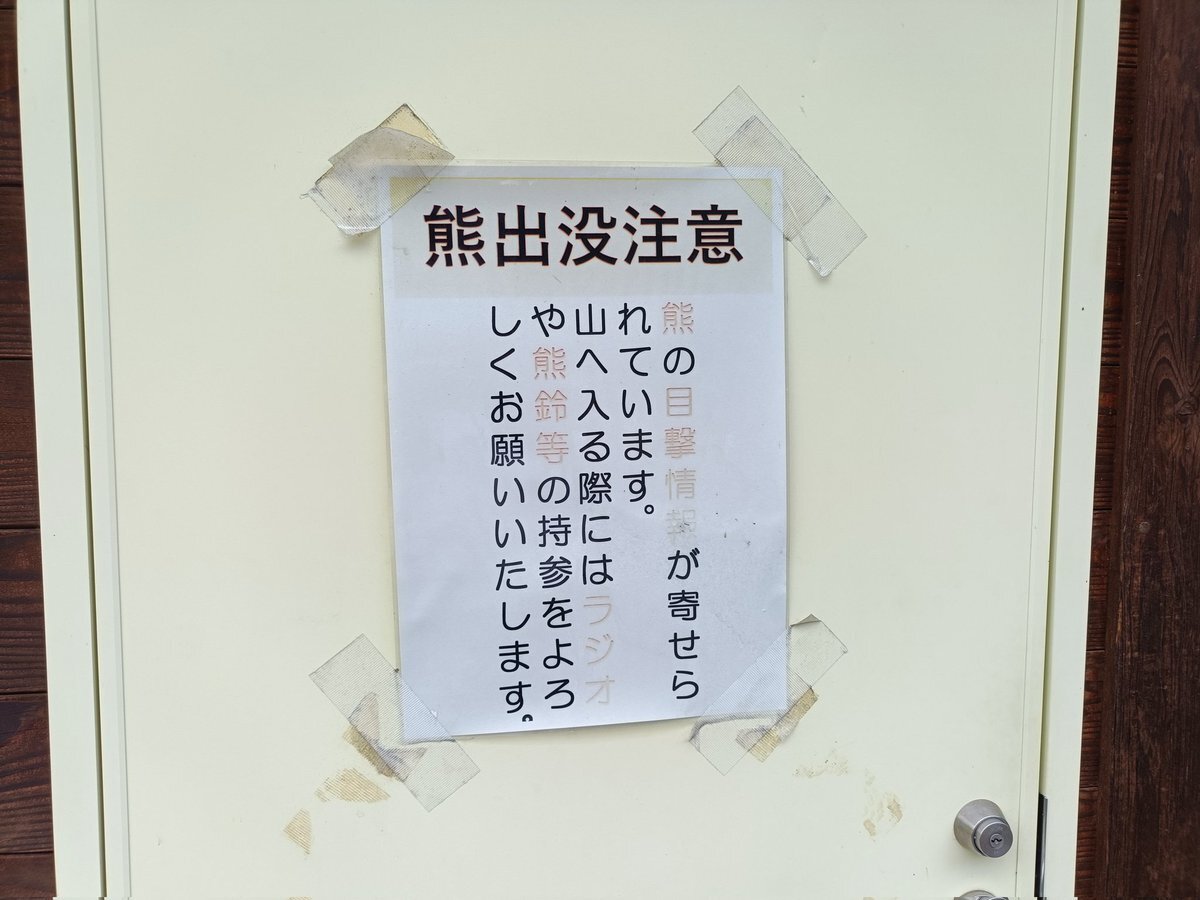 熊出没注意
熊の目撃情報が寄せら
れています。
山へ入る際にはラジオ
や熊鈴等の持参をよろ
しくお願いいたします。